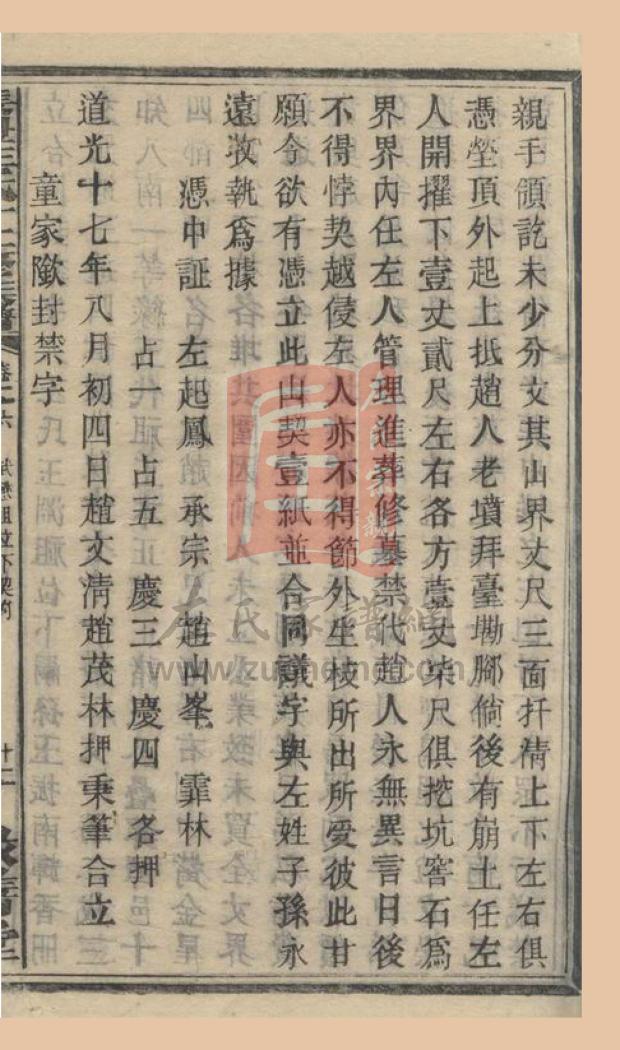 親手領訖未少分文其山界丈尺三面扦清上下左右俱
憑塋頂外起上抵趙人老墳拜臺墈腳倘後有崩土任左
人開擢下壹丈貳尺左右各方壹丈柒尺俱挖坑窖石爲
界界內任左人管理進葬修墓禁代趙人永無異言日後
不得悖契越侵左人亦不得節外生枝所出所受彼此甘
願令欲有憑立此山契壹紙並合同議字與左姓子孫永
遠收執爲據
憑中証 左起鳳 承宗 趙山峯 霏林
占一 占五 慶三 慶四 各押
道光十七年八月初四日趙文清趙茂林押秉筆合立
童家歘封禁字
卷之六
十二
左氏家譜網
www.zushome.com